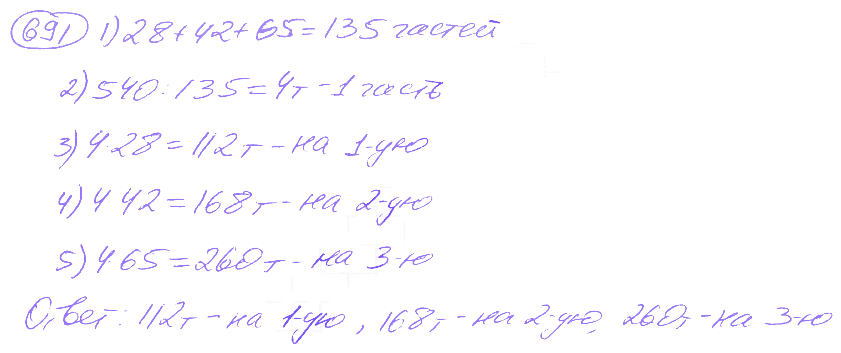 691 1) 28+42+65=135 частей
2) 540:135=4т-1 часть
3) 4·28=112т-на 1-ую
4) 4 42=168т-на 2-ую
5) 4·65=260т-на 3-ю
Ответ: 112т-на 1-ую, 168т-на 2-ую, 260т-на 3-ю